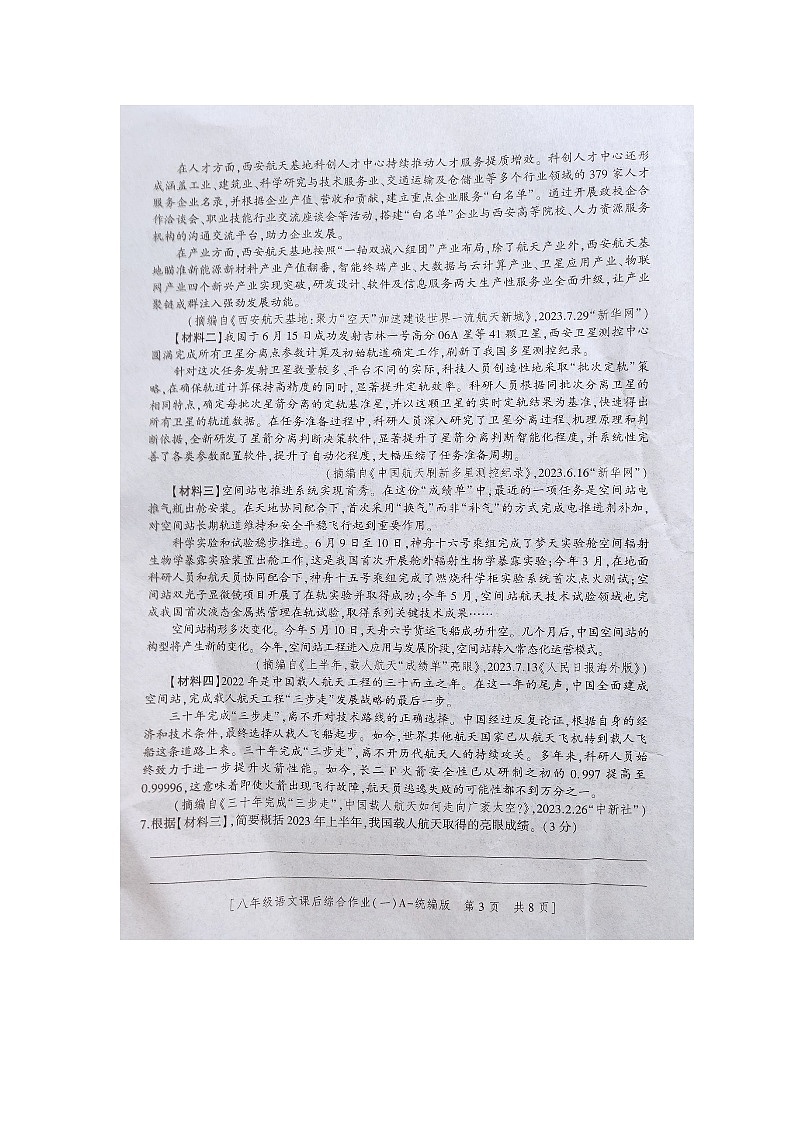 在人才方面,西安航天基地科创人才中心持续推动人才服务提质增效。科创人才中心还形
成涵盖工业、建筑业、科学研究与技术服务业、交通运输及仓储业等多个行业领域的 379 家人才
服务企业名录,并根据企业产值、营收和贡献,建立重点企业服务“白名单”。通过开展政校企合
作洽谈会、职业技能行业交流座谈会等活动,搭建“白名单”企业与西安高等院校、人力资源服务
机构的沟通交流平台,助力企业发展。
在产业方面,西安航天基地按照“一轴双城八组团”产业布局,除了航天产业外,西安航天基
地瞄准新能源新材料产业产值翻番,智能终端产业、大数据与云计算产业、卫星应用产业、物联
网产业四个新兴产业实现突破,研发设计、软件及信息服务两大生产性服务业全面升级,让产业
聚链成群注入强劲发展动能。
(摘编自《西安航天基地:聚力“空天”加速建设世界一流航天新城》,2023.7.29“新华网”)
【材料二】我国于 6 月 15 日成功发射吉林一号高分 06A 星等 41 颗卫星,西安卫星测控中心
圆满完成所有卫星分离点参数计算及初始轨道确定工作,刷新了我国多星测控纪录。
针对这次任务发射卫星数量较多、平台不同的实际,科技人员创造性地采取“批次定轨”策
略,在确保轨道计算保持高精度的同时,显著提升定轨效率。科研人员根据同批次分离卫星的
相同特点,确定每批次星箭分离的定轨基准星,并以这颗卫星的实时定轨结果为基准,快速得出
所有卫星的轨道数据。在任务准备过程中,科研人员深入研究了卫星分离过程、机理原理和判
断依据,全新研发了星箭分离判断决策软件,显著提升了星箭分离判断智能化程度,并系统性完
善了各类参数配置软件,提升了自动化程度,大幅压缩了任务准备周期。
(摘编自《中国航天刷新多星测控纪录》,2023.6.16“新华网”)
【材料三】空间站电推进系统实现首秀。在这份“成绩单”中,最近的一项任务是空间站电
推气瓶出舱安装。在天地协同配合下,首次采用“换气”而非“补气”的方式完成电推进剂补加,
对空间站长期轨道维持和安全平稳飞行起到重要作用。
科学实验和试验稳步推进。6 月 9 日至 10 日,神舟十六号乘组完成了梦天实验舱空间辐射
生物学暴露实验装置出舱工作,这是我国首次开展舱外辐射生物学暴露实验;今年 3 月,在地面
科研人员和航天员协同配合下,神舟十五号乘组完成了燃烧科学柜实验系统首次点火测试;空
间站双光子显微镜项目开展了在轨实验并取得成功;今年 5 月,空间站航天技术试验领域也完
成我国首次液态金属热管理在轨试验,取得系列关键技术成果……
空间站构形多次变化。今年 5 月 10 日,天舟六号货运飞船成功升空。几个月后,中国空间站的
构型将产生新的变化。今年,空间站工程进入应用与发展阶段,空间站转入常态化运营模式。
(摘编自《上半年,载人航天“成绩单”亮眼》,2023.7.13《人民日报海外版》)
【材料四】2022 年是中国载人航天工程的三十而立之年。在这一年的尾声,中国全面建成
空间站,完成载人航天工程“三步走”发展战略的最后一步。
三十年完成“三步走”,离不开对技术路线的正确选择。中国经过反复论证,根据自身的经
济和技术条件,最终选择从载人飞船起步。如今,世界其他航天国家已从航天飞机转到载人飞
船这条道路上来。三十年完成“三步走”,离不开历代航天人的持续攻关。多年来,科研人员始
终致力于进一步提升火箭性能。如今,长二 F 火箭安全性已从研制之初的 0.997 提高至
0.99996,这意味着即使火箭出现飞行故障,航天员逃逸失败的可能性都不到万分之一。
(摘编自《三十年完成“三步走”,中国载人航天如何走向广袤太空?》,2023.2.26“中新社”)
7.根据【材料三】,简要概括 2023 年上半年,我国载人航天取得的亮眼成绩。(3 分)
[八年级语文课后综合作业(一)A-统编版 第 3 页 共 8 页]